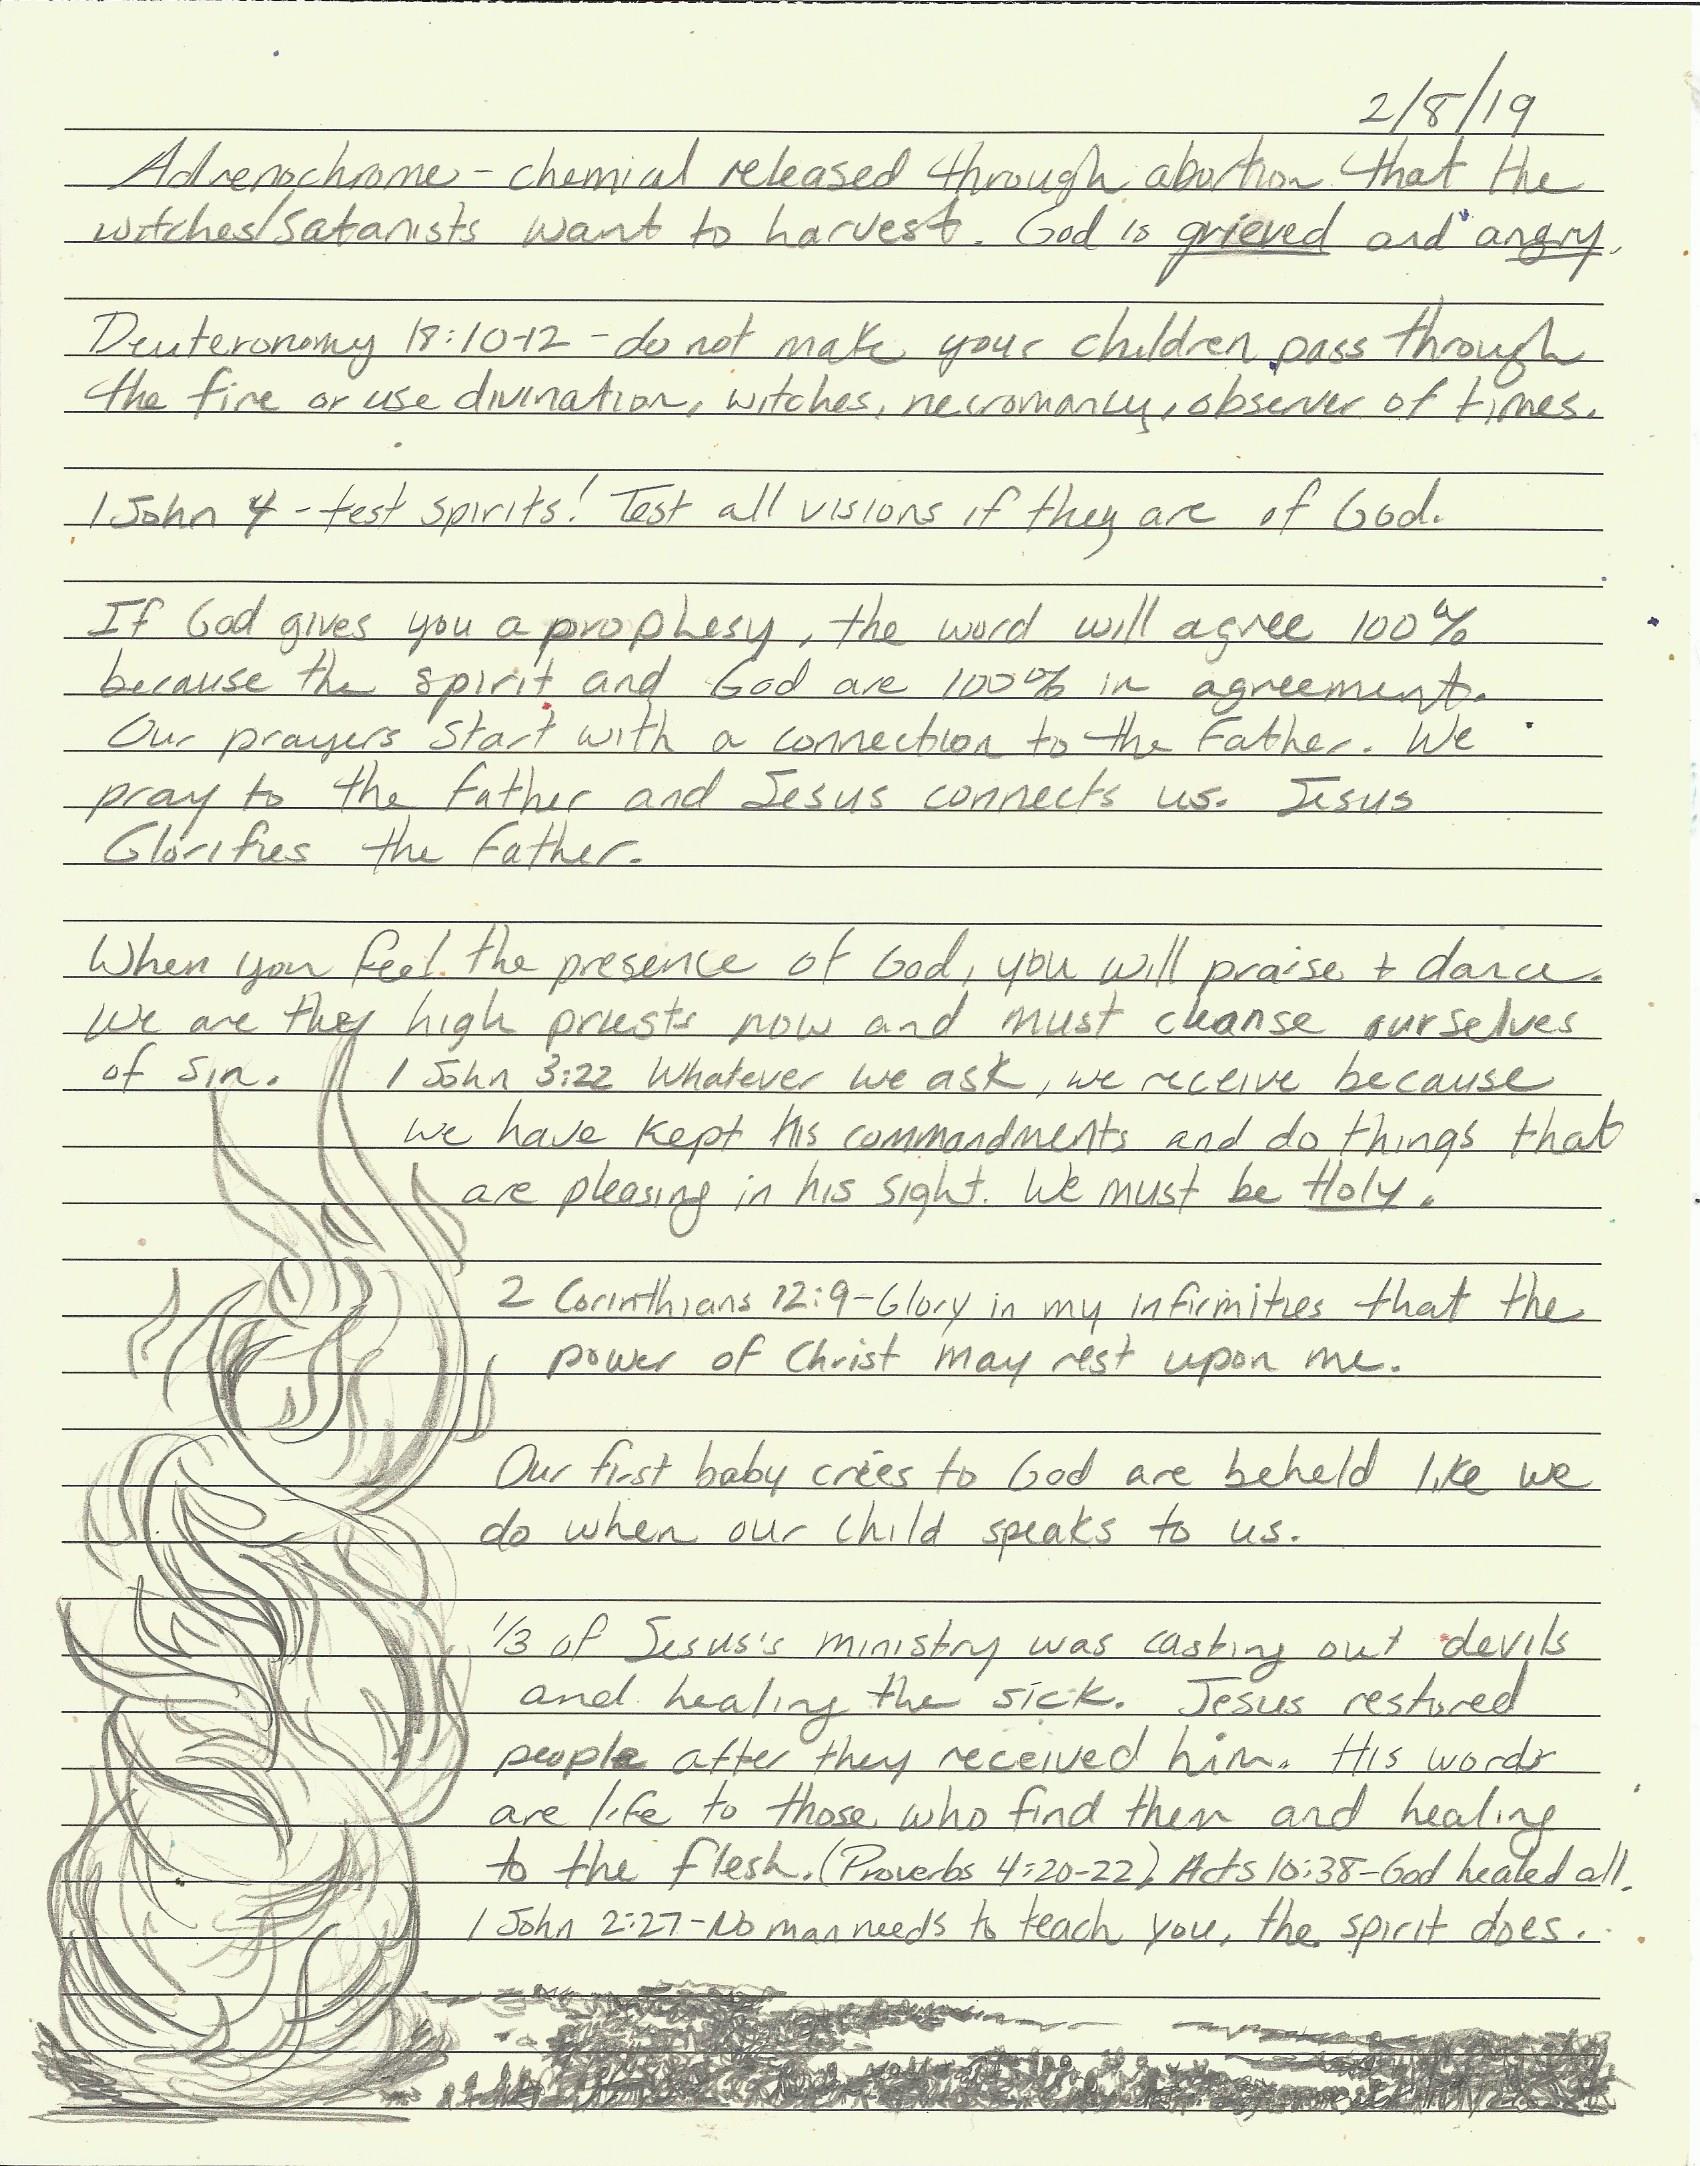 2/8/19
Adrenochrome - chemical released through abortion that the
witches/Satanists want to harvest. God is grieved and angry.
Deuteronomy 18:10-12 - do not make your children pass through
the fire or use divination, witches, necromancy, observer of times.
1 John 4 - test spirits! Test all visions if they are of God.
If God gives you a prophesy, the word will agree 100%
because the spirit and God are 100% in agreement.
Our prayers start with a connection to the Father. We
pray to the father and Jesus connects us. Jesus
Glorifies the Father.
When you feel the presence of God, you will praise + dance.
We are they high priests now and must cleanse ourselves
of sin. 1 John 3:22 Whatever we ask, we receive because
we have kept his commandments and do things that
are pleasing in his sight. We must be Holy.
2 Corinthians 12:9 - Glory in my infirmities that the
power of Christ may rest upon me.
Our first baby cries to God are beheld like we
do when our child speaks to us.
1/3 of Jesus's ministry was casting out devils
and healing the sick. Jesus restored
people after they received him. His words
are life to those who find them and healing
to the flesh. (Proverbs 4:20-22) Acts 10:38 - God healed all.
1 John 2:27 - No man needs to teach you, the spirit does.